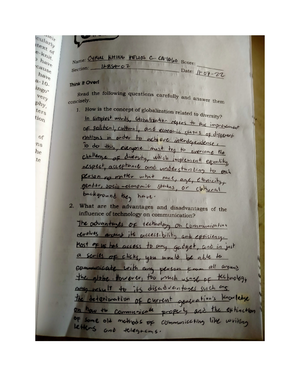 Name: Score:
Section:
Think It Over!
Read the following questions carefully and answer them
concisely.
1. How is the concept of globalization related to diversity?
In simplest words, Globalization refers to the improvement
of political, cultural, and economic status of different
nations in order to achieve interdependence.
To do this, everyone must try to overcome the
challenge of diversity, which implement equality,
respect, acceptance and understanding to each
person no matter what race, age, ethnicity,
gender, socio-economic status, or cultural
background they have.
2. What are the advantages and disadvantages of the
influence of technology on communication?
The advantages of technology on communication
revolves around its accessibility and efficiency.
Most of us has access to any gadget, and in just
a series of clicks, you would be able to
communicate with any person from all around
the globe. However, too much usage of technology
may result to its disadvantages such as
the deterioration of current generation's knowledge
on how to communicate properly and the extinction
of some old methods of communicating like writing
letters and telegrams.